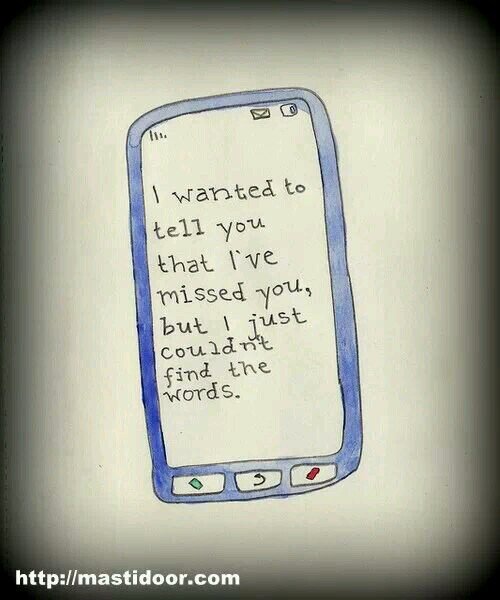 I wanted to
tell you
that I've
missed you,
but I just
couldn't
find the
words.
http://mastidoor.com